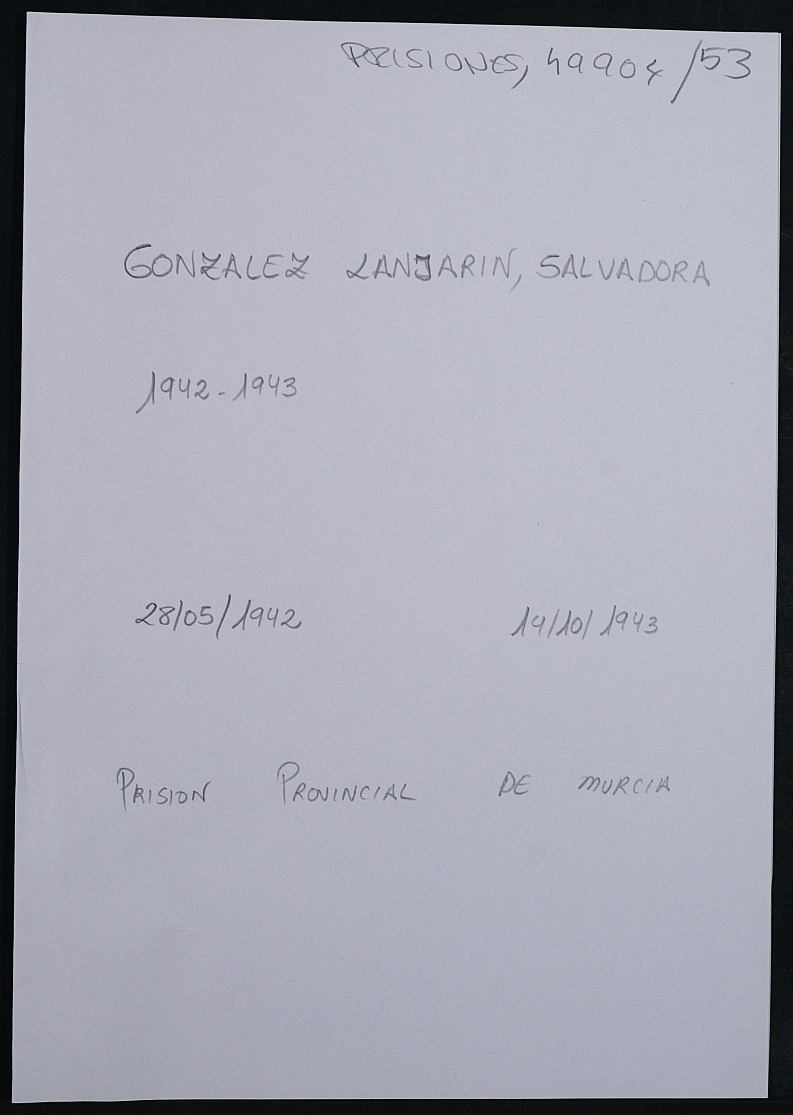 PRISIONES, 49904/53
GONZALEZ LANJARIN, SALVADORA
1942-1943
28/05/1942 14/10/1943
PRISION PROVINCIAL DE MURCIA